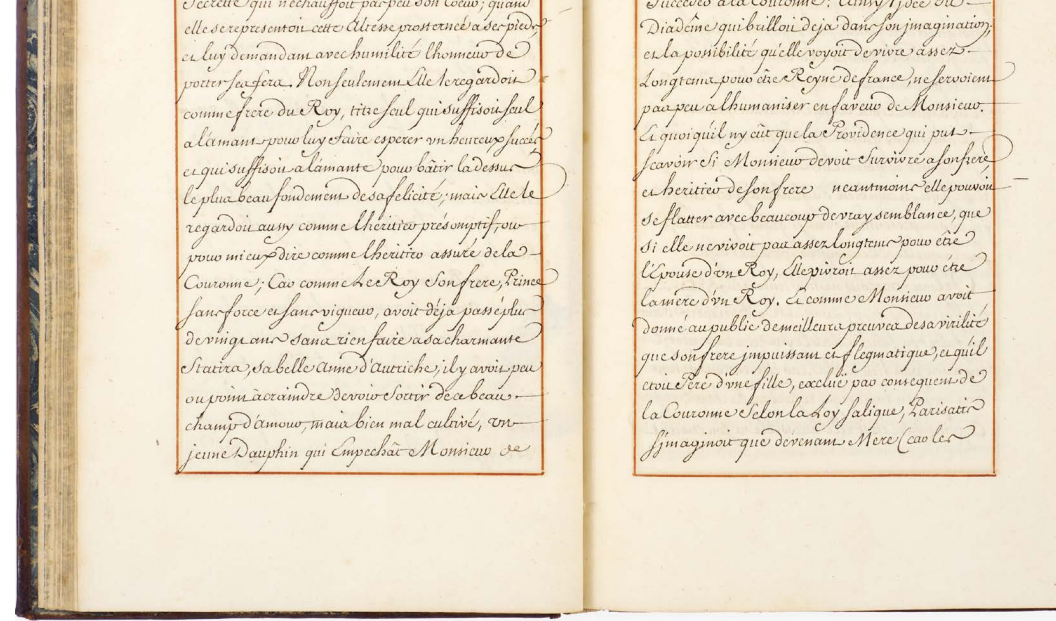 Secrette qui n'echauffoit pas peu son Coeur; quand
elle se representoit cette Altesse prosternée a ses pieds,
et luy demandant avec humilité lhonneur de
porter ses fers. Non seulement Elle le regardoit
comme frere du Roy, titre seul qui suffisoit seul
a lamant pour luy faire esperer un heureux succés
et qui suffisoit a lamante pour bâtir la dessus
le plus beau fondement de sa felicité; mais Elle le
regardoit aussy comme lheritier présomptif, ou
pour mieux dire comme lheritier assuré de la
Couronne; Car comme Le Roy Son frere, Prince
sans force et sans vigueur, avoit déja passé plus
de vingt ans sans rien faire a sa charmante
Statira, sa belle Anne d'Autriche, il y avoit peu
ou point à craindre de voir Sortir de ce beau
champ d'amour, mais bien mal cultivé, un
jeune Dauphin qui Empechât Monsieur de
Succeder a la Couronne:
Diadême qui brilloit deja dans son jmagination,
et la possibilité qu'elle voyoit de vivre assez
Longtems pour être Reyne de france, ne servoient
pas peu a lhumaniser en faveur de Monsieur.
Et quoi quil ny eût que la Providence qui put
scavoir Si Monsieur devoit Survivre a son frere
et heritier de son frere neantmoins elle pouvoit
se flatter avec beaucoup de vray semblance, que
si elle ne vivoit pas assez longtems pour être
l'Epouse d'un Roy, Elle vivroit assez pour être
la mere d'un Roy. Et comme Monsieur avoit
donné au public de meilleurs preuves de sa virilité
que son frere jmpuissant et flegmatique, et qu'il
etoit Pere d'une fille, excluë par consequent de
la Couronne Selon la Loy salique, Parisatis
s'jmaginoit que devenant Mere (car les